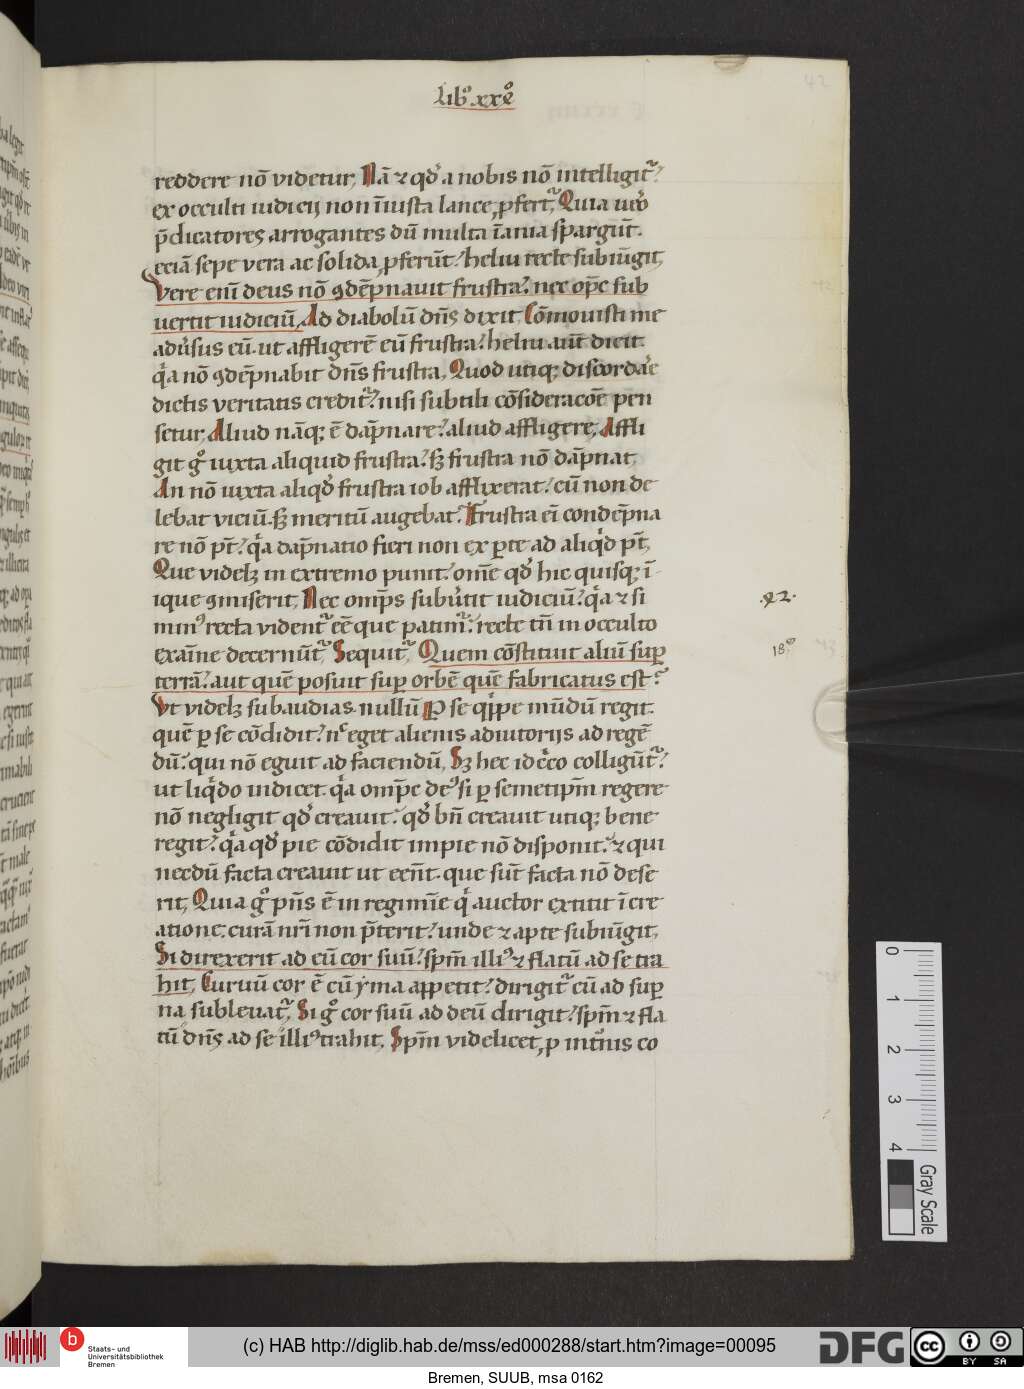 Lib⁹ .xxe⁹
reddere nō videtur, Nā ⁊ qd̕ a nobis nō intelligit᷑
ex occulti iudicij non īiusta lance ꝓfert᷑, Quia uo̕
p̄dicatores arrogantes dū multa īania spargūt.
eciā sepe vera ac solida ꝓferūt/ heliu recte subiūgit,
Vere enī deus nō ꝯdēpnauit frustra/ nec op̄c sub
uertit iudiciū, Ad diabolū dn̄s dixit Cōmouisti me
adv̕sus eū. ut affligerē eū frustra/ heliu aūt dicit.
qͥa nō ꝯdēpnabit dn̄s frustra, Quod utiqꝫ discordar̕e
dictis veritatis credit᷑/ nisi subtili cōsideracōe pen
setur, Aliud nāqꝫ ē dāpnare/ aliud affligere, Affli
git gͦ iuxta aliquid frustra/ sꝫ frustra nō dāpnat,
An nō iuxta aliqd̕ frustra iob afflixerat/ cū non de
lebat viciū. sꝫ meritū augebat/ Frustra ei condēpna
re nō pt̄/ qͥa dāpnatio fieri non ex ꝑte ad aliqͥd pt̄,
Que videlꝫ in extremo punit/ om̄e qd̕ hic quisqꝫ ī
ique ꝯmiserit, Nec omp̄s subv̕tit iudiciū/ qͥa ⁊ si
min⁹ recta vident᷑ eē que patim᷑/ recte tn̄ in occulto
exāīne decernūt᷑, Sequit᷑, Quem cōstituit aliū suꝑ
terrā/ aut quē posuit suꝑ orbē quē fabricatus est/
Vt videlꝫ subaudias nullū ꝑ se qͥppe mūdū regit.
quē ꝑ se cōdidit/ nͨ eget alienis adiutorijs ad regē
dū/ qui nō eguit ad faciendū, Sꝫ hec idcͥco colligūt᷑/
ut liqͥdo indicet. qͥa omp̄c de⁹ si ꝑ semetip̄m regere
nō negligit qd̕ creauit/ qd̕ bn̄ creauit utiqꝫ bene
regit/ qͥa qd̕ pie cōdidit impie nō disponit/ ⁊ qui
necdū facta creauit ut eēnt. que sūt facta nō dese
rit, Quia gͦ pn̄s ē in regimīe qͥ auctor extitit ī cre
atione. curā nr̄i non p̄terit/ unde ⁊ apte subiūgit,
Si direxerit ad eū cor suū/ sp̄m illi⁹ ⁊ flatū ad se tra
hit, Curuū cor ē cū yma appetit/ dirigit᷑ cū ad suꝑ
na subleuat᷑, Si gͦ cor suū ad deū dirigit/ sp̄m ⁊ fla
tū dn̄s ad se illi⁹ trahit, Spm̄ videlicet, ꝓ int̕nis co
.22.
18⁹
42
0
1
2
3
4
Gray Scale
b
Staats- und
Universitätsbibliothek
Bremen
(c) HAB http://diglib.hab.de/mss/ed000288/start.htm?image=00095
DFG
cc
BY SA
Bremen, SUUB, msa 0162